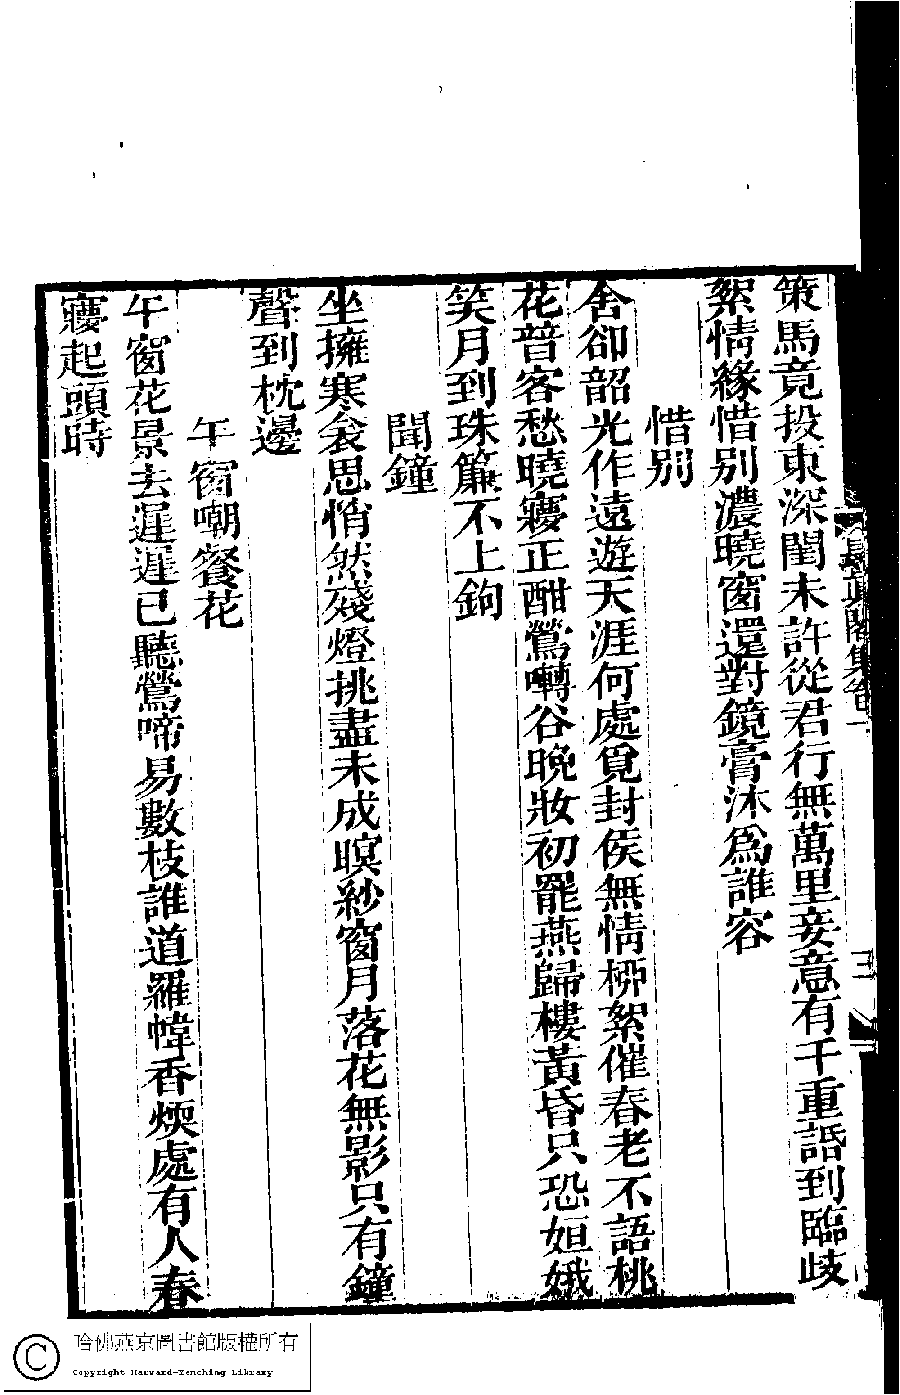 策馬竟投東深閨未許從君行無萬里妾意有千重話到臨歧
絮情緣惜別濃曉窗還對鏡膏沐為誰容
惜別
舍卻韶光作遠遊天涯何處覓封侯無情柳絮催春老不語桃
花替客愁曉寢正酣鶯囀谷晚妝初罷燕歸樓黃昏只恐姮娥
笑月到珠簾不上鉤
聞鐘
坐擁寒衾思悄然殘燈挑盡未成瞑紗窗月落花無影只有鐘
聲到枕邊
午窗嘲餐花
午窗花景去遲遲已聽鶯啼易數枝誰道羅幃香煗處有人春
寢起頭時
長真閣集卷一
三
哈佛燕京圖書館版權所有
Copyright Harvard-Yenching Library